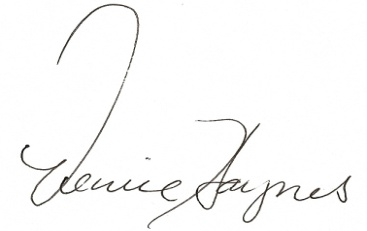 Denice Haynes